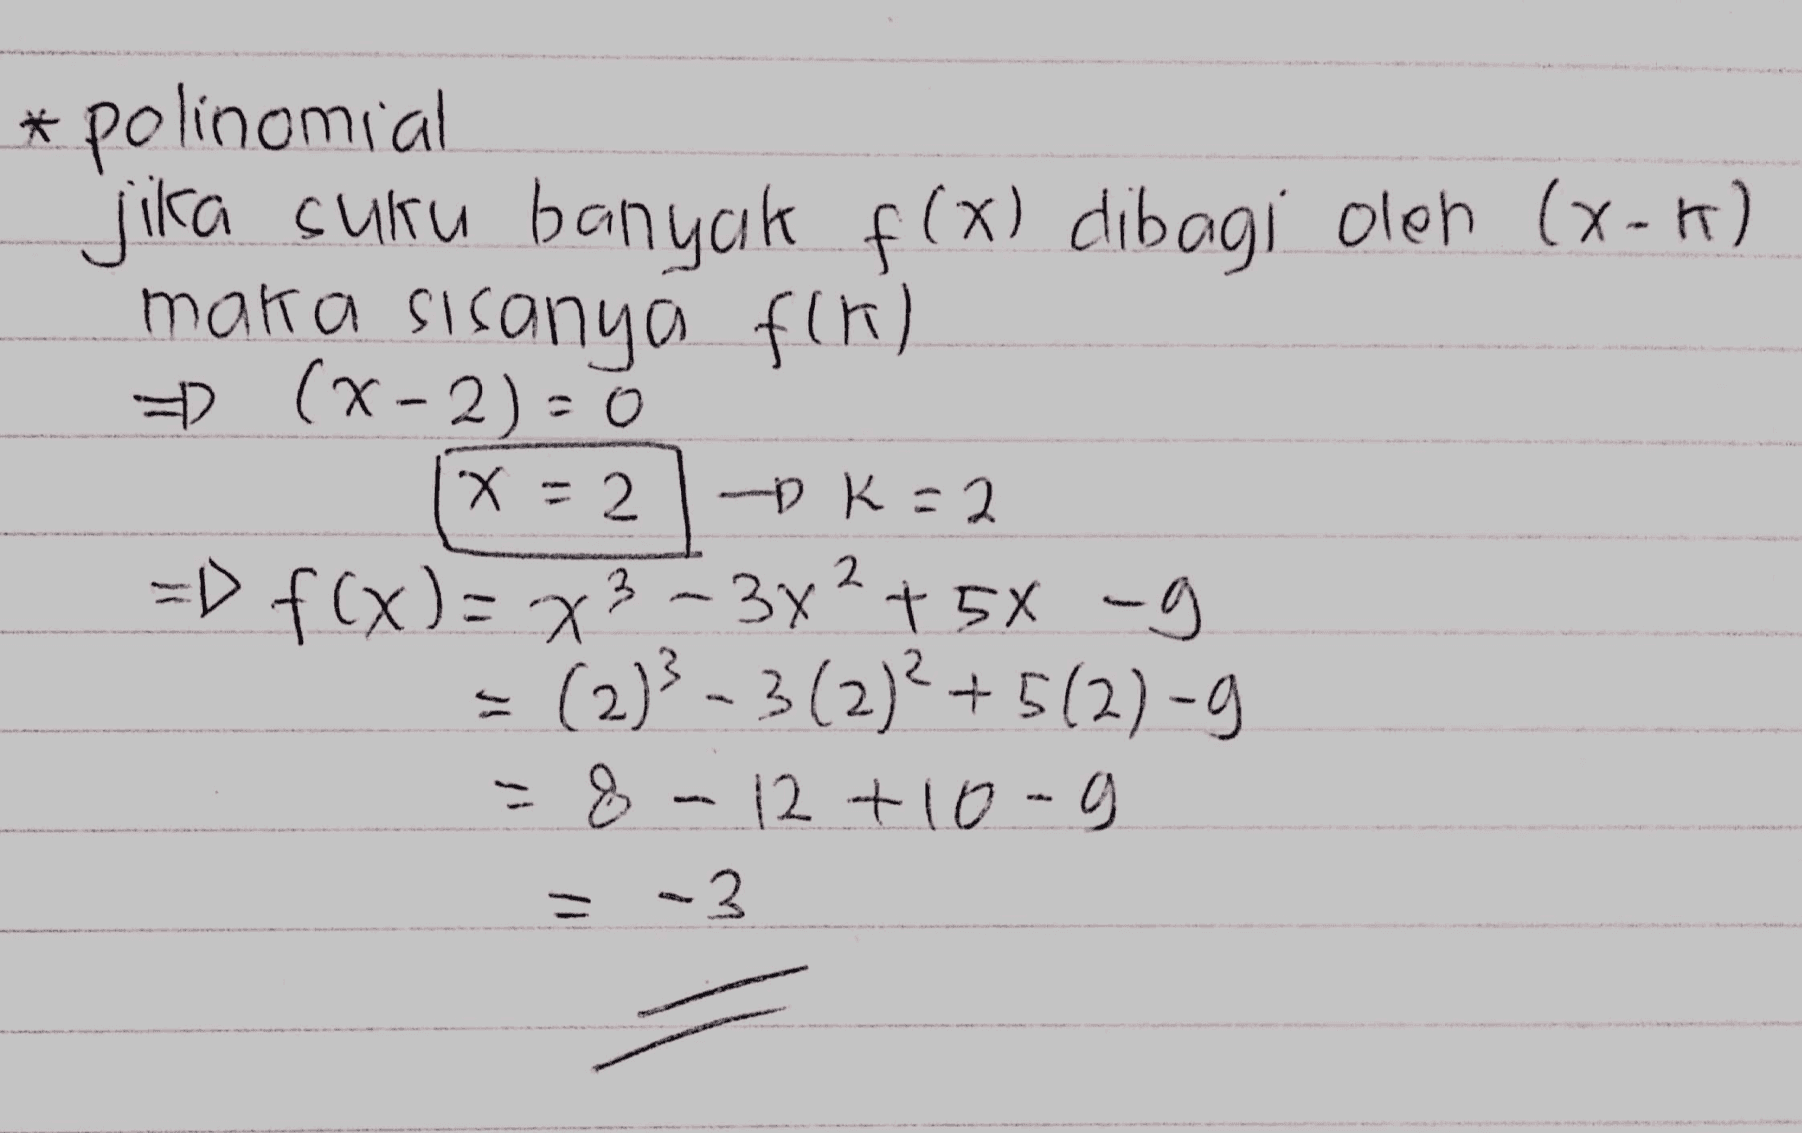 * polinomial
jika suku banyak f(x) dibagi oleh (x-k)
maka sisanya f(k)
⇒ (x-2) = 0
x = 2 → k = 2
⇒ f(x) = x³ - 3x² + 5x - 9
= (2)³ - 3(2)² + 5(2) - 9
= 8 - 12 + 10 - 9
= -3